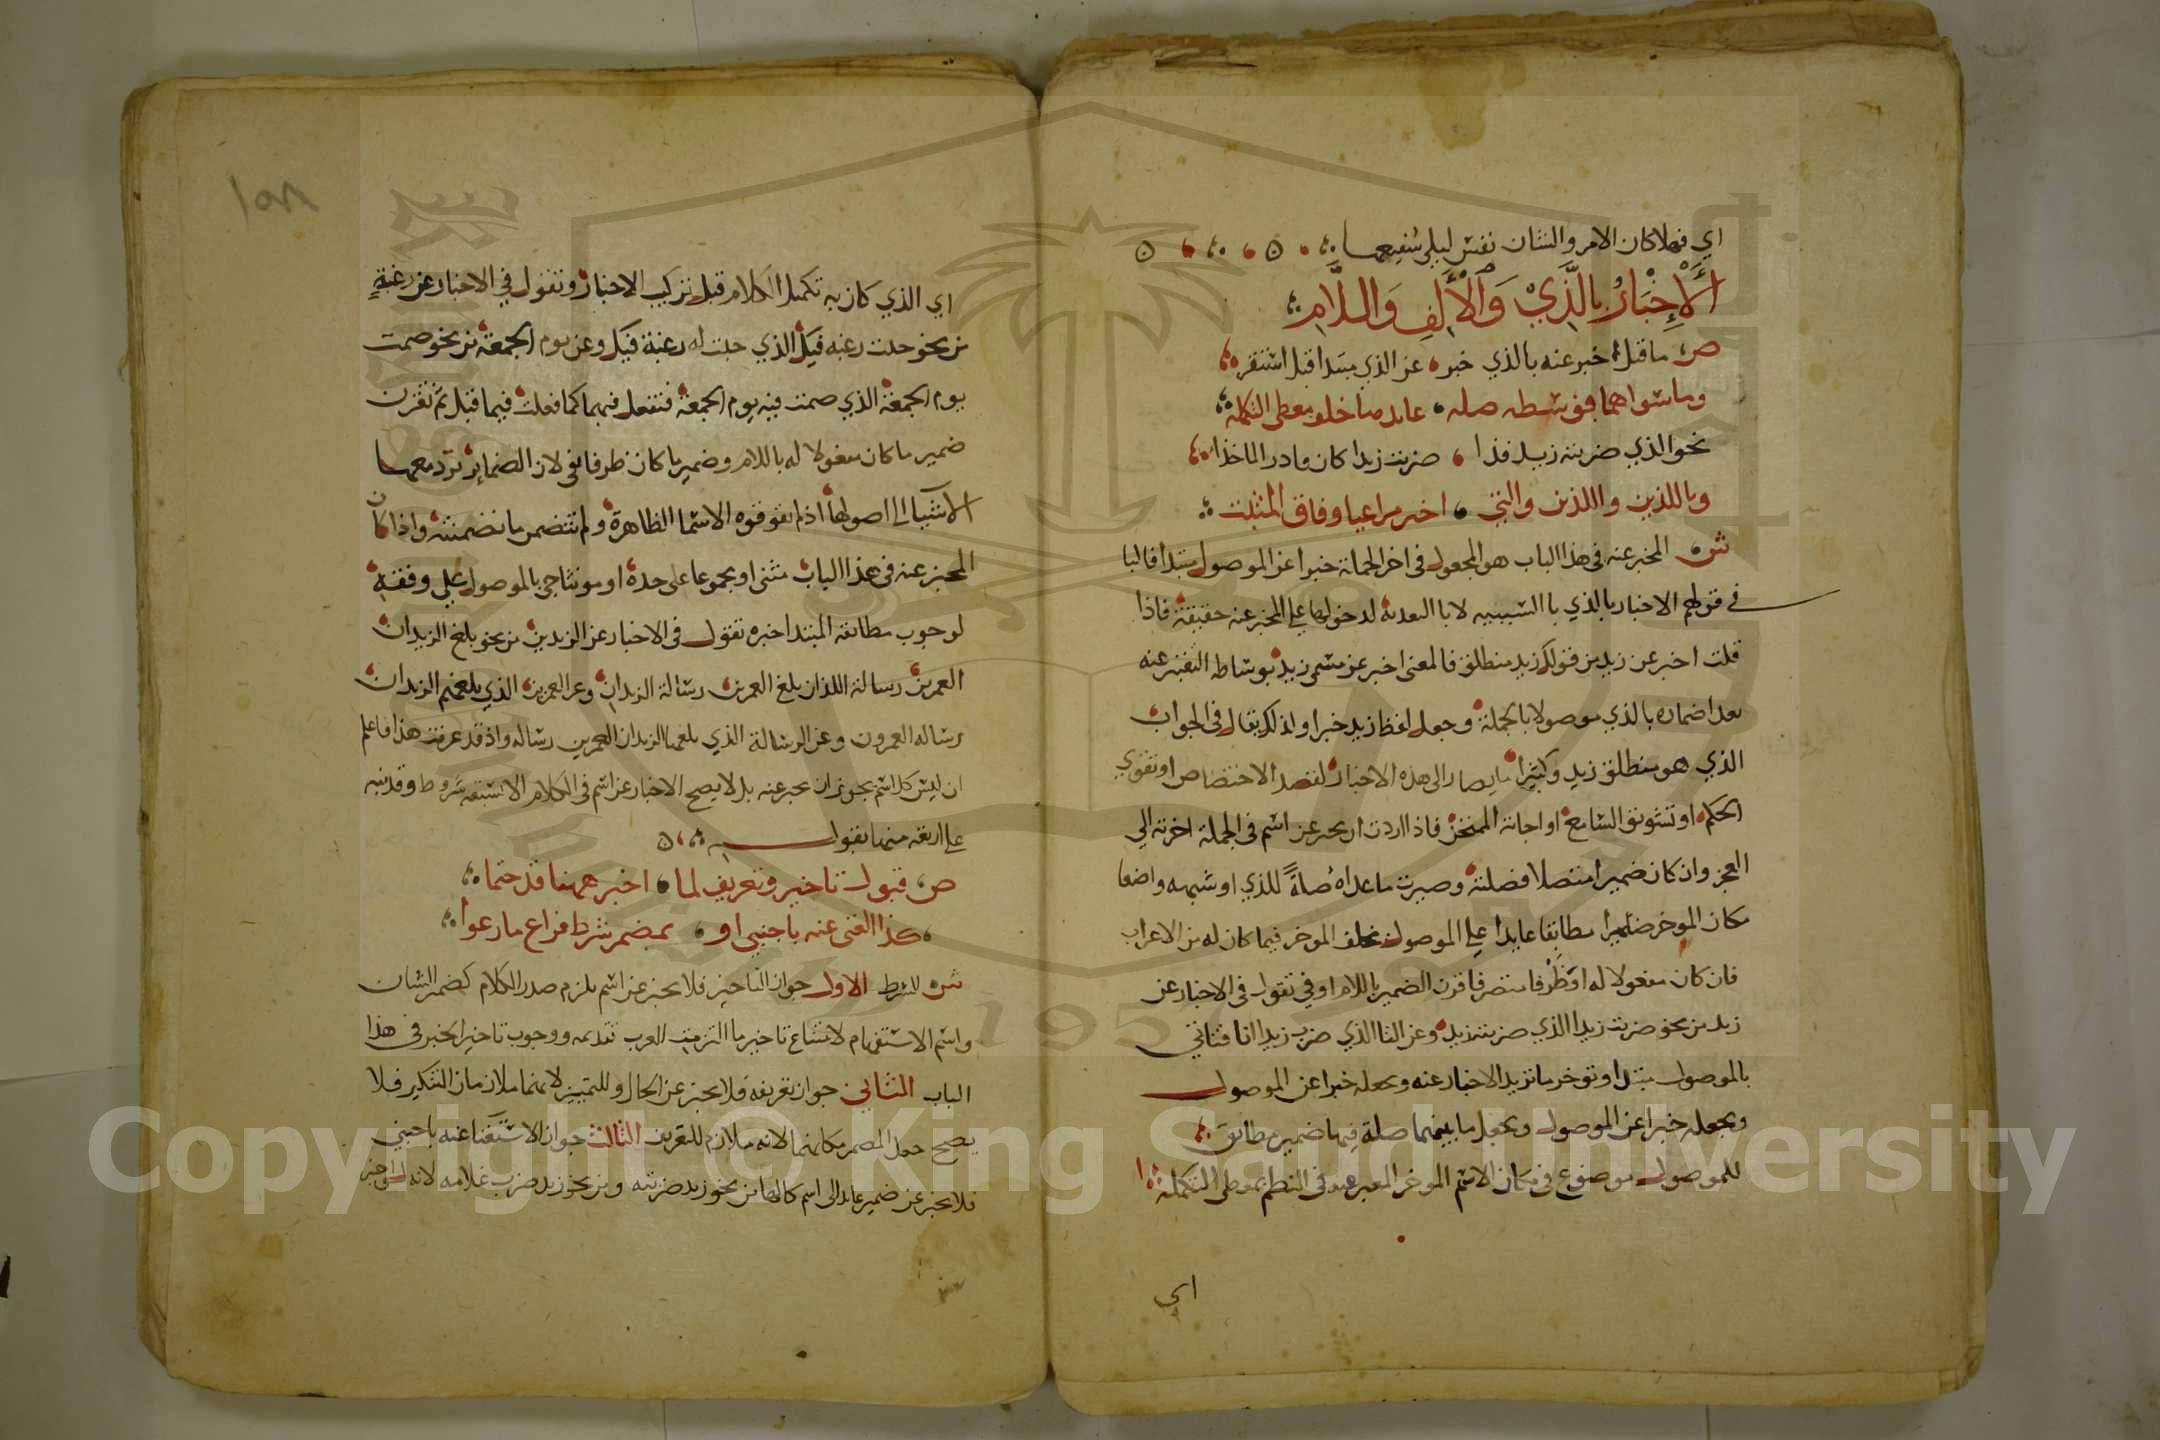 اي فهلا كان الامر والشان نفس ليلي شفيعها
اَلْإِخْبَارُ بِالَّذِيْ وَالْأَلِفِ وَاللَّامِ
ص ما قيل اخبر عنه بالذي خبر عن الذي مبتدا قبل استقر
وما سواهما فوسطه صله عايدها خلف معطي التكمله
نحو الذي ضربته زيد فذا ضربت زيدا كان فادر الماخذا
وباللذين واللذين والتي اخبر مراعيا وفاق المثبت
ش المخبر عنه في هذا الباب هو المجعول في اخر الجملة خبرا عن الموصول مبتدا فالبا
في قولهم الاخبار بالذي با السببيه لا با التعديه لدخولها علي المخبر عنه حقيقة فاذا
قلت اخبر عن زيد من قولك زيد منطلق فالمعنى اخبر عن مسمى زيد بوساطه التعبير عنه
بعد اضماره بالذي موصولا بالجملة وجعل لفظ زيد خبرا ولذلك يقال في الجواب
الذي هو منطلق زيد وكثيرا ما يصار الى هذه الاخبار لقصد الاختصاص او تقوي
الحكم او تشويق السامع او اجابة الممتحن فاذا اردت ان تخبر عن اسم في الجملة اخرته الي
العجز وان كان ضميرا متصلا فصلته وصيرت ما عداه صلةً للذي او شبهه واضعا
مكان الموخر ضميرا مطابقا عايدا علي الموصول يخلف الموخر فيما كان له من الاعراب
فان كان مفعولا له او ظرفا متصرفا قرن الضمير باللام او في تقول في الاخبار عن
زيد من نحو ضربت زيدا الذي ضربته زيد وعن التا الذي ضرب زيدا انا فتاتي
بالموصول مبتدا وتوخر ما تريد الاخبار عنه وتجعله خبرا عن الموصول
وتجعله خبرا عن الموصول وتجعل ما بينهما صلة فيها ضمير مطابق
للموصول موضوع في مكان الاسم الموخر المعبر عنه في النظم بمعطي التكمله
اي
١٥٨
اي الذي كان به تكميل الكلام قبل تركيب الاخبار وتقول في الاخبار عن رغبةٍ
من نحو جيت رغبه فيك الذي جيت له رغبة فيك وعن يوم الجمعة من نحو صمت
يوم الجمعة الذي صمت فيه يوم الجمعة فتفعل فيهما كما فعلت فيما قبل ثم تقرن
ضمير ما كان مفعولا له باللام وضمير ما كان ظرفا بفي لان الضماير ترد معها
الاشيا الى اصولها اذ لم تقو قوه الاسما الظاهرة ولم تتضمن ما تضمنته واذا كان
المخبر عنه في هذا الباب مثنى او مجموعا على حده او مونثا جي بالموصول علي وفقه
لوجوب مطابقه المبتدا خبره تقول في الاخبار عن الزيدين من نحو بلغ الزيدان
العمرين رسالة اللذان بلغ العمرين رسالة الزيدان وعن العمرين الذي بلغهم الزيدان
رساله العمرون وعن الرسالة الذي بلغها الزيدان العمرين رساله واذ قد عرفت هذا فاعلم
ان ليس كل اسم يجوز ان يخبر عنه بل لا يصح الاخبار عن اسم في الكلام الا بسبعه شروط وقد نبه
علي اربعه منها بقوله
ص قبول تاخير وتعريف لما اخبر عنه ههنا قد حتما
كذا الغنى عنه باجنبي او بمضمر شرط فراع ما رعوا
ش الشرط الاول جواز التاخير فلا يخبر عن اسم يلزم صدر الكلام كضمير الشان
واسم الاستفهام لامتناع تاخير ما التزمت العرب تقديمه ووجوب تاخير الخبر في هذا
الباب الثاني جواز تعريفه فلا يخبر عن الحال والتمييز لانهما ملازمان التنكير فلا
يصح جعل المضمر مكانهما لانه ملازم للتعريف الثالث جواز الاستغنا عنه باجنبي
فلا يخبر عن ضمير عايد الى اسم كالها من نحو زيد ضربته ومن نحو زيد ضرب غلامه لانه
Copyright © King Saud University